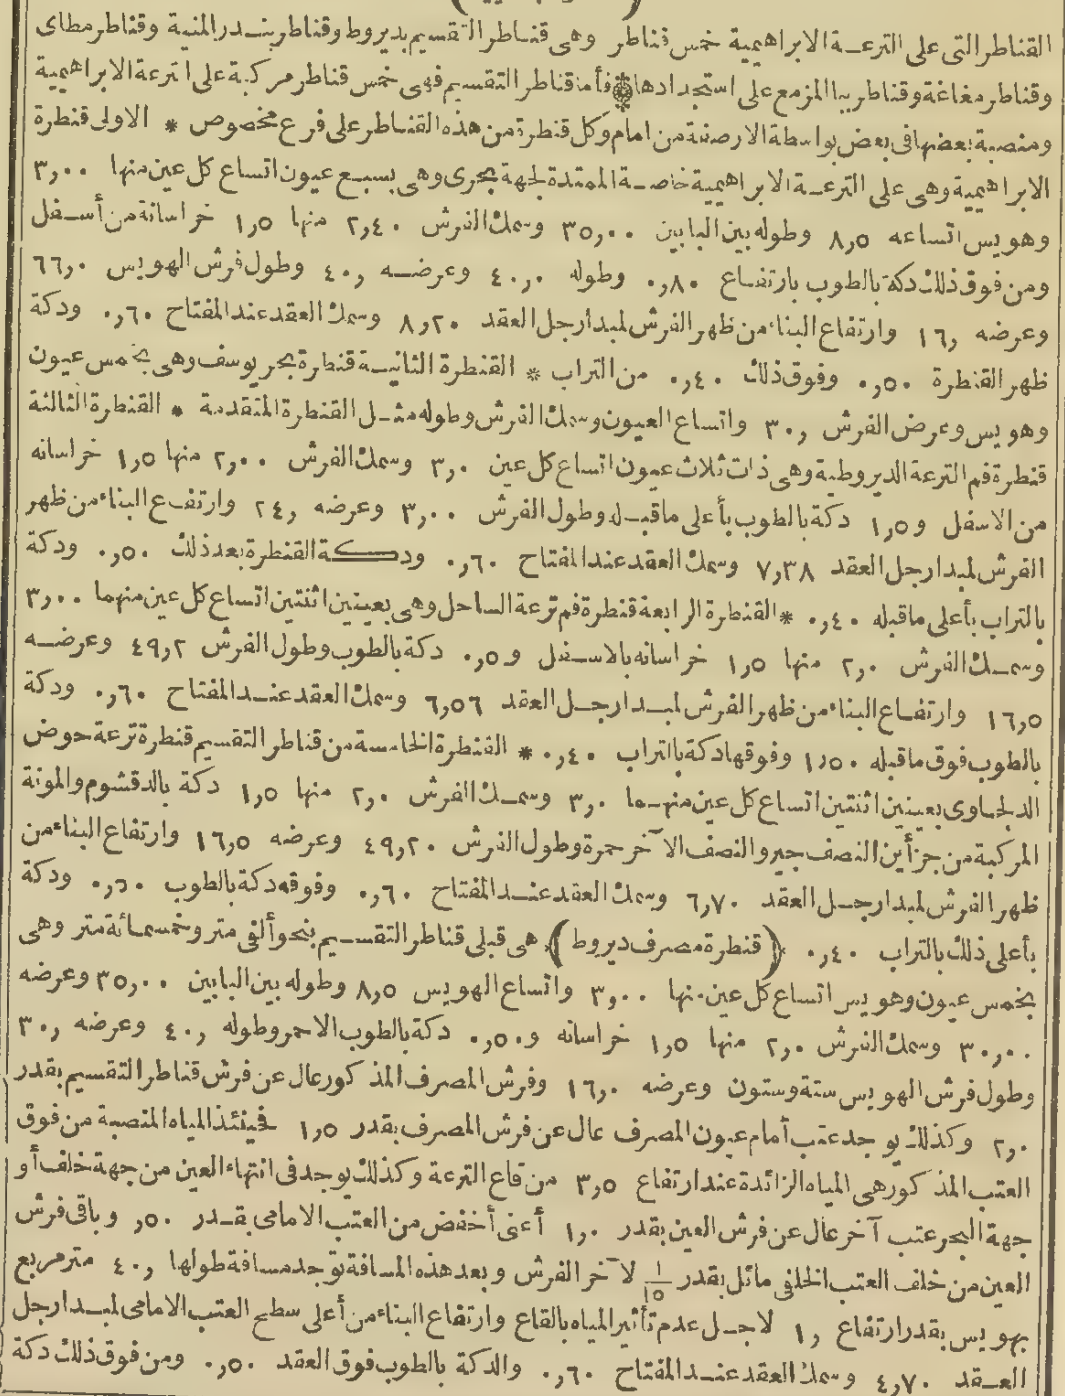 القناطر التى على الترعة الابراهيمية خمس قناطر وهى قناطر التقسيم بديروط وقناطر بندر المنية وقناطر مطاى
وقناطر مغاغة وقناطر ببا المزمع على استجدادها * فأما قناطر التقسيم فهى خمس قناطر مركبة على الترعة الابراهيمية
ومنصبة بعضها فى بعض بواسطة الارصفة من امام وكل قنطرة من هذه القناطر على فرع مخصوص * الاولى قنطرة
الابراهيمية وهى على الترعة الابراهيمية خاصة الممتدة لجهة بحرى وهى بسبع عيون اتساع كل عين منها ٣٫٠٠
وهويس اتساعه ٨٫٥ وطوله بين البابين ٣٥٫٠٠ وسمك الفرش ٢٫٤٠ منها ١٫٥ خراسانة من أسفل
ومن فوق ذلك دكة بالطوب بارتفاع ٠٫٨٠ وطوله ٤٠٫٠ وعرضه ٤٠٫ وطول فرش الهويس ٦٦٫٠
وعرضه ١٦٫ وارتفاع البناء من ظهر الفرش لمبدا رجل العقد ٨٫٢٠ وسمك العقد عند المفتاح ٠٫٦٠ ودكة
ظهر القنطرة ٠٫٥٠ وفوق ذلك ٠٫٤٠ من التراب * القنطرة الثانية قنطرة بحر يوسف وهى بخمس عيون
وهويس وعرض الفرش ٣٠٫ واتساع العيون وسمك الفرش وطوله مثل القنطرة المتقدمة * القنطرة الثالثة
قنطرة فم الترعة الديروطية وهى ذات ثلاث عيون اتساع كل عين ٣٫٠ وسمك الفرش ٢٫٠٠ منها ١٫٥ خراسانه
من الاسفل و ١٫٥ دكة بالطوب بأعلى ماقبله وطول الفرش ٣٫٠٠ وعرضه ٢٤٫ وارتفاع البناء من ظهر
الفرش لمبدا رجل العقد ٧٫٣٨ وسمك العقد عند المفتاح ٠٫٦٠ ودكة القنطرة بعد ذلك ٠٫٥٠ ودكة
بالتراب بأعلى ماقبله ٠٫٤٠ * القنطرة الرابعة قنطرة فم ترعة الساحل وهى بعينين اثنتين اتساع كل عين منهما ٣٫٠٠
وسمك الفرش ٢٫٠ منها ١٫٥ خراسانه بالاسفل و ٠٫٥ دكة بالطوب وطول الفرش ٤٩٫٢ وعرضه
١٦٫٥ وارتفاع البناء من ظهر الفرش لمبدا رجل العقد ٦٫٥٦ وسمك العقد عند المفتاح ٠٫٦٠ ودكة
بالطوب فوق ماقبله ١٫٥٠ وفوقها دكة بالتراب ٠٫٤٠ * القنطرة الخامسة من قناطر التقسيم قنطرة ترعة حوض
الدلجاوى بعينين اثنتين اتساع كل عين منهما ٣٫٠ وسمك الفرش ٢٫٠ منها ١٫٥ دكة بالدقشوم والمونة
المركبة من جزأين النصف جير والنصف الآخر حمرة وطول الفرش ٤٩٫٢٠ وعرضه ١٦٫٥ وارتفاع البناء من
ظهر الفرش لمبدا رجل العقد ٦٫٧٠ وسمك العقد عند المفتاح ٠٫٦٠ وفوقه دكة بالطوب ودكة
بأعلى ذلك بالتراب ٠٫٤٠ (قنطرة مصرف ديروط) هى قبلى قناطر التقسيم بنحو ألفى متر وخمسمائة متر وهى
بخمس عيون وهويس اتساع كل عين منها ٣٫٠٠ واتساع الهويس ٨٫٥ وطوله بين البابين ٣٥٫٠٠ وعرضه
٣٠٫٠٠ وسمك الفرش ٢٫٠ منها ١٫٥ خراسانه و ٠٫٥٠ دكة بالطوب الاحمر وطوله ٤٠٫ وعرضه ٣٠٫
وطول فرش الهويس ستة وستون وعرضه ١٦٫٠ وفرش المصرف المذكور عال عن فرش قناطر التقسيم بقدر
٢٫٠ وكذلك يوجد عتب أمام عيون المصرف عال عن فرش المصرف بقدر ١٫٥ فحينئذ المياه المنصبة من فوق
العتب المذكور هى المياه الزائدة عند ارتفاع ٣٫٥ من قاع الترعة وكذلك يوجد فى انتهاء العين من جهة خلف أو
جهة البحر عتب آخر عال عن فرش العين بقدر ١٫٠ أعنى أخفض من العتب الامامى بقدر ٥٠٫ وباقى فرش
العين من خلف العتب الخلفى مائل بقدر ١/١٥ لآخر الفرش وبعد هذه المسافة توجد مسافة طولها ٤٠٫ متر مربع
بهويس بقدر ارتفاع ١٫ لاجل عدم تأثير المياه بالقاع وارتفاع البناء من أعلى سطح العتب الامامى لمبدا رجل
العقد ٤٫٧٠ وسمك العقد عند المفتاح ٠٫٦٠ والدكة بالطوب فوق العقد ٠٫٥٠ ومن فوق ذلك دكة